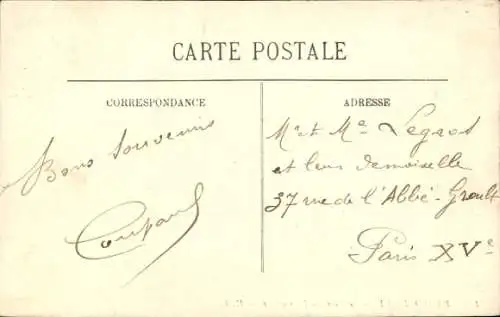 CARTE POSTALE
CORRESPONDANCE
Bons souvenirs
ADRESSE
Mr et Me Legros
et leur demoiselle
37 rue de l'Abbé-Groult
Paris XVe